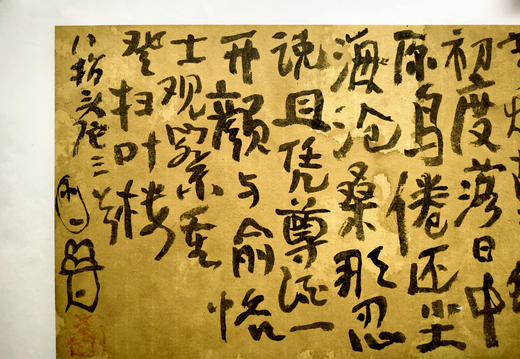 初度落日中
原鸟倦还
海沧桑那忍
说且凭尊酒一
开颜与俞恪
士观察重
登扫叶楼
八指头陀三